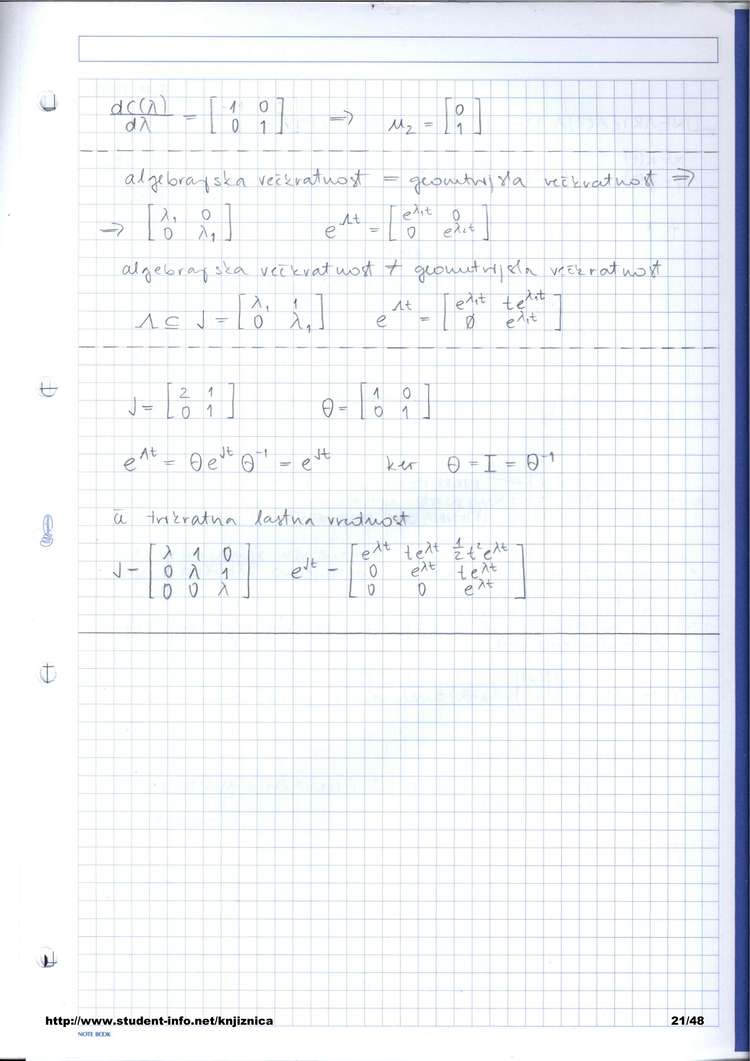 dC(λ)/dλ = [1 0; 0 1] ⇒ u₂ = [0; 1]
algebrajska večkratnost = geometrijska večkratnost ⇒
⇒ [λ₁ 0; 0 λ₁] e^Λt = [e^λ₁t 0; 0 e^λ₁t]
algebrajska večkratnost ≠ geometrijska večkratnost
Λ ⊆ J = [λ₁ 1; 0 λ₁] e^Λt = [e^λ₁t te^λ₁t; ∅ e^λ₁t]
J = [2 1; 0 1] θ = [1 0; 0 1]
e^Λt = θe^Jtθ⁻¹ = e^Jt ker θ = I = θ⁻¹
za trikratna lastna vrednost
J = [λ 1 0; 0 λ 1; 0 0 λ] e^Jt = [e^λt te^λt ½t²e^λt; 0 e^λt te^λt; 0 0 e^λt]
http://www.student-info.net/knjiznica 21/48
NOTE BOOK